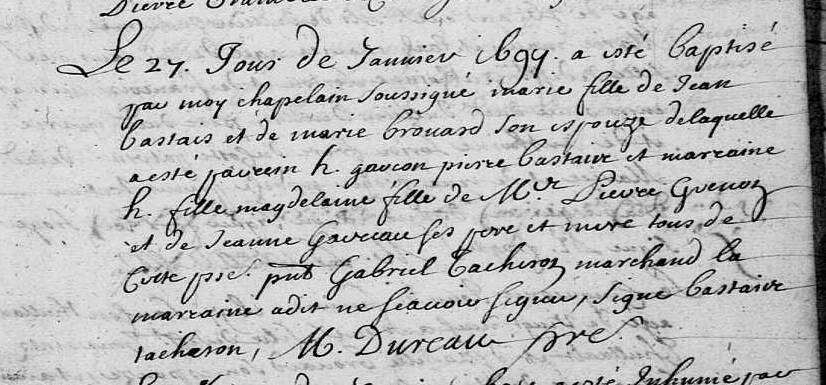 Le 27. Jour de Januier 1697. a esté baptisé
par moy chapelain soussigné marie fille de Jean
bastais et de marie broüard son espouze delaquelle
a esté parein h. garcon pierre bastair et marraine
h. fille magdelaine fille de Mr. Pierre Guenon
et de Jeanne Gareau ses pere et mere tous de
Cette psse. Gabriel Tacheron marchand la
marraine adit ne scauoir signer, signe bastair
tacheron, M. Dureau pre.
inhumé par